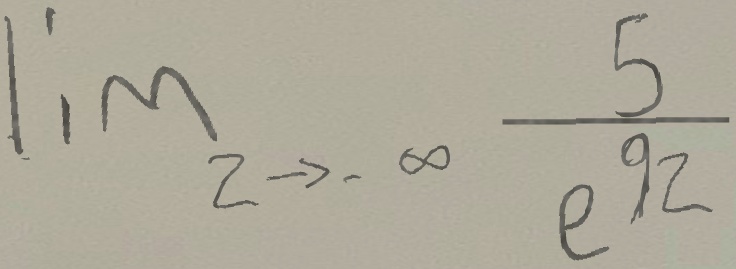 \lim_{z \to -\infty} \frac{5}{e^{9z}}